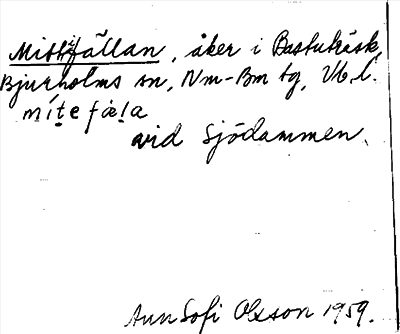 Mittfällan, åker i Bastuträsk,
Bjurholms sn, Nm-Bm tg, Vb. l.
mítefäla
vid Sjödammen.
Ann Sofi Olsson 1959.